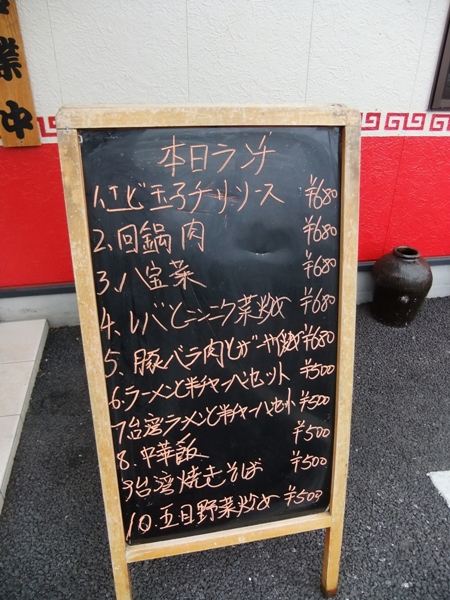 業中
本日ランチ
1.エビ玉子チリソース ¥680
2.回鍋肉 ¥680
3.八宝菜 ¥680
4.レバとニンニク菜炒め ¥680
5.豚バラ肉と ¥680
6.ラーメンと半チャーハンセット ¥500
7.台湾ラーメンと半チャーハンセット ¥500
8.中華飯 ¥500
9.台湾焼きそば ¥500
10.五目野菜炒め ¥500